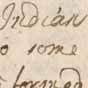 Indian
o some
formed